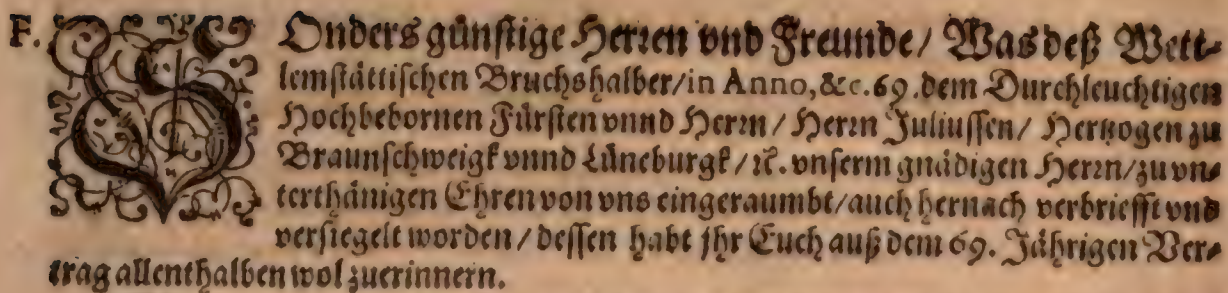 F. SOnders günstige Herren vnd Freunde/ Was deß Mett-
lemstättischen Bruchshalber/in Anno, &c.69.dem Durchleuchtigen
Hochbebornen Fürsten vnnd Herrn/ Herrn Juliussen/ Hertzogen zu
Braunschweigk vnnd Lüneburgk/ ꝛc. vnserm gnädigen Herrn/zu vn-
terthänigen Ehren von vns eingeraumbt/auch hernach verbriefft vnd
versiegelt worden/ dessen habt jhr Euch auß dem 69. Jährigen Ver-
trag allenthalben wol zuerinnern.